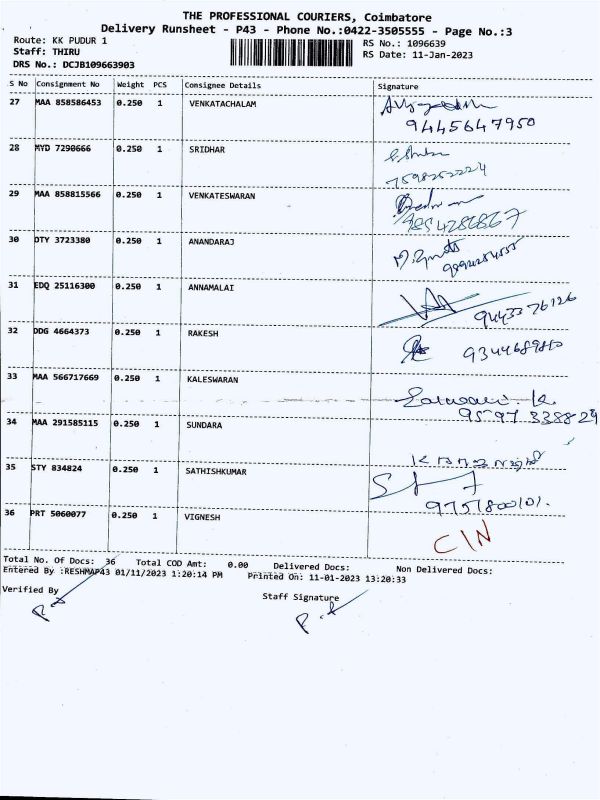 THE PROFESSIONAL COURIERS, Coimbatore
Delivery Runsheet - P43 - Phone No.:0422-3505555 - Page No.:3
Route: KK PUDUR 1
Staff: THIRU
DRS No.: DCJB109663903
RS No.: 1096639
RS Date: 11-Jan-2023
S No Consignment No Weight PCS Consignee Details Signature
27 MAA 858586453 0.250 1 VENKATACHALAM
9445647950
28 MYD 7290666 0.250 1 SRIDHAR
29 MAA 858815566 0.250 1 VENKATESWARAN
30 DTY 3723380 0.250 1 ANANDARAJ
31 EDQ 25116300 0.250 1 ANNAMALAI
9443376126
32 DDG 4664373 0.250 1 RAKESH
33 MAA 566717669 0.250 1 KALESWARAN
9597338829
34 MAA 291585115 0.250 1 SUNDARA
35 STY 834824 0.250 1 SATHISHKUMAR
9751800101.
36 PRT 5060077 0.250 1 VIGNESH CIN
Total No. Of Docs: 36 Total COD Amt: 0.00 Delivered Docs: Non Delivered Docs:
Entered By :RESHMAP43 01/11/2023 1:20:14 PM Printed On: 11-01-2023 13:20:33
Verified By
Staff Signature